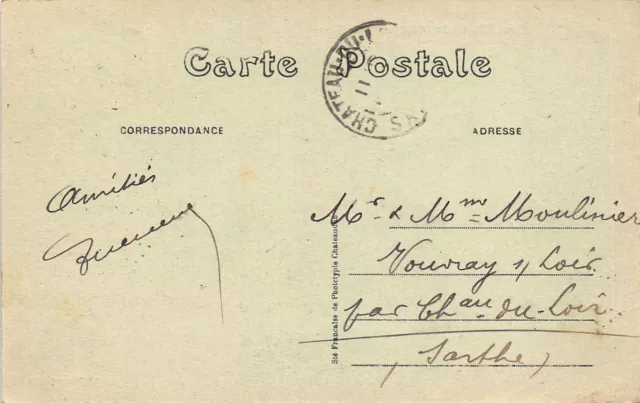 Carte Postale
CHATEAU-DU-L
11
CORRESPONDANCE
ADRESSE
Amitiés
Mr & Mme Moulinier
Vouvray s/ Loir
par Chau du-Loir
(Sarthe)
Sté Française de Phototypie Chateaud